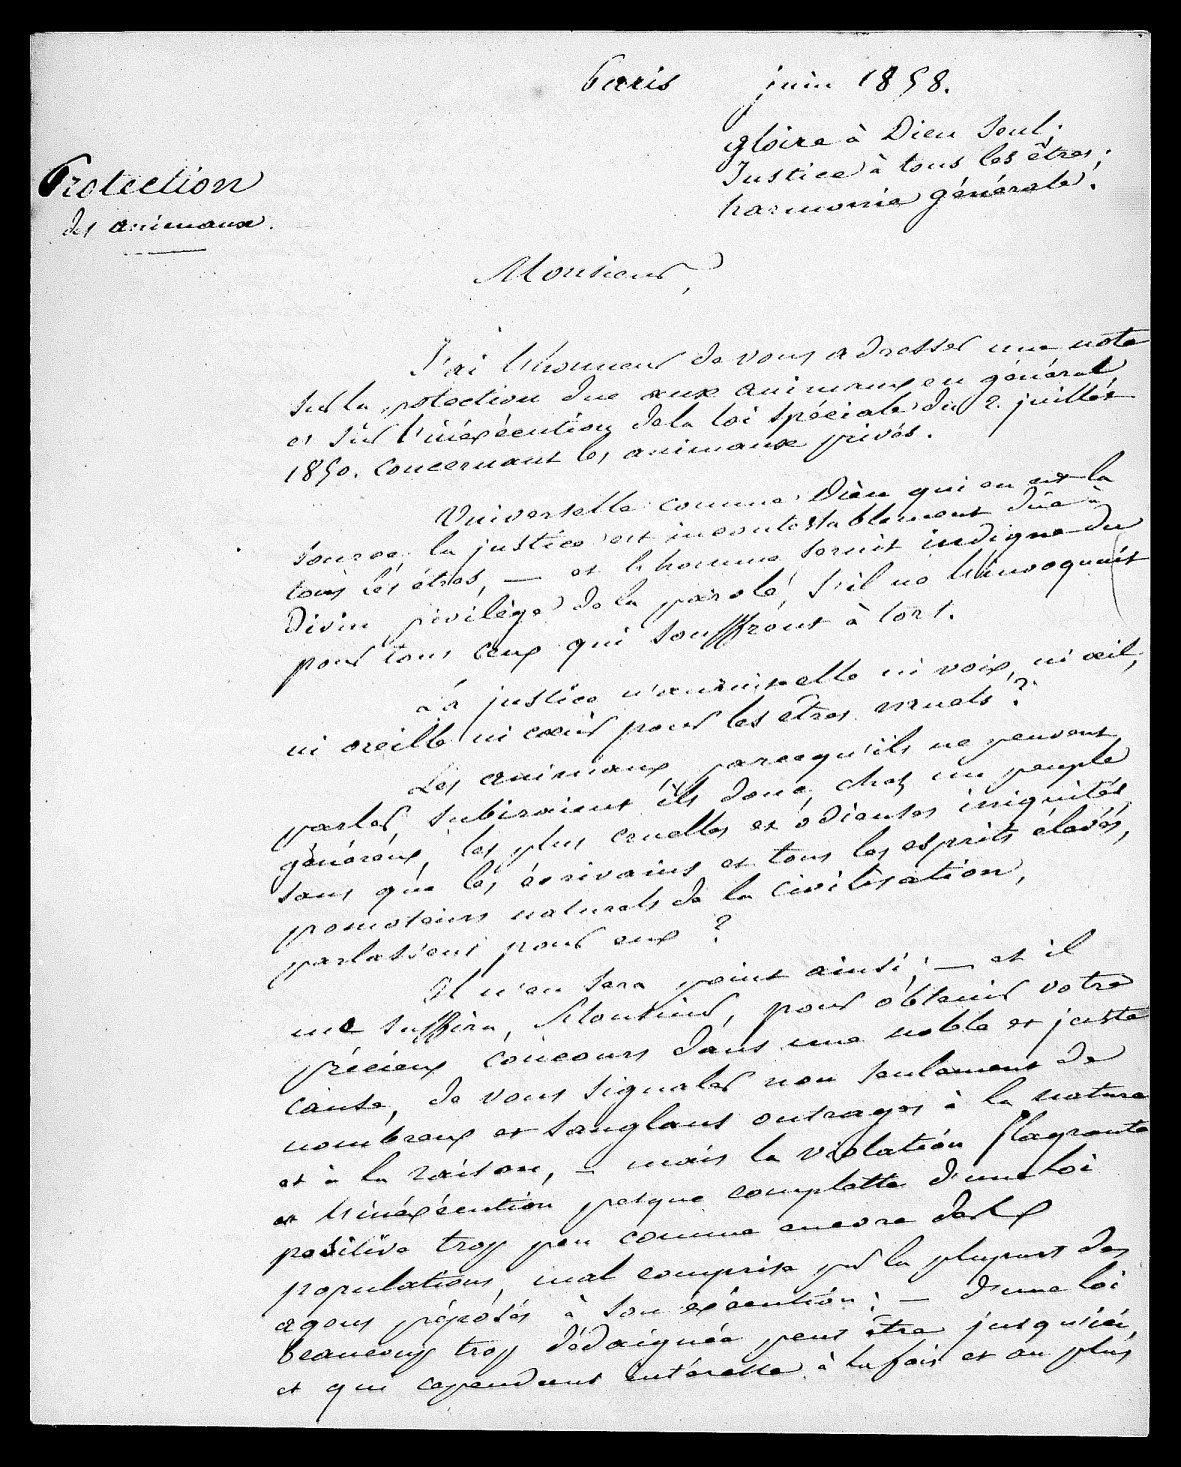 Paris juin 1858.
gloire à Dieu seul;
Justice à tous les êtres;
harmonie générale.
Protection
des animaux.
Monsieur,
J'ai l'honneur de vous adresser une note
sur la protection due aux animaux en général
et sur l'inéxécution de la loi spéciale du 2. juillet
1850. concernant les animaux privés.
Universelle comme Dieu qui en est la
source, la justice est incontestablement düe à
tous les etres, — et l'homme serait indigne du
Divin privilège de la parole, s'il ne l'invoquait
pour tous ceux qui souffrent à tort.
La justice n'aurait-elle ni voix, ni œil,
ni oreille ni cœur pour les êtres muets?
Les animaux, parcequ'ils ne peuvent
parler, subiraient ils donc, chez un peuple
généreux, les plus cruelles et odieuses iniquités,
sans que les écrivains et tous les esprits élevés,
promoteurs naturels de la civilisation,
parlassent pour eux?
Il n'en sera point ainsi; — et il
me suffira, Monsieur, pour obtenir votre
précieux concours dans une noble et juste
cause, de vous signaler non seulement de
nombreux et sanglans outrages à la nature
et à la raison, — mais la violation flagrante
et l'inéxécution presque complette d'une loi
positive trop peu connue encore des
populations, mal comprise par la plupart des
agens préposés à son éxécution; — d'une loi
beaucoup trop dédaignée peut être jusqu'ici,
et qui cependant intéresse à la fois et au plus